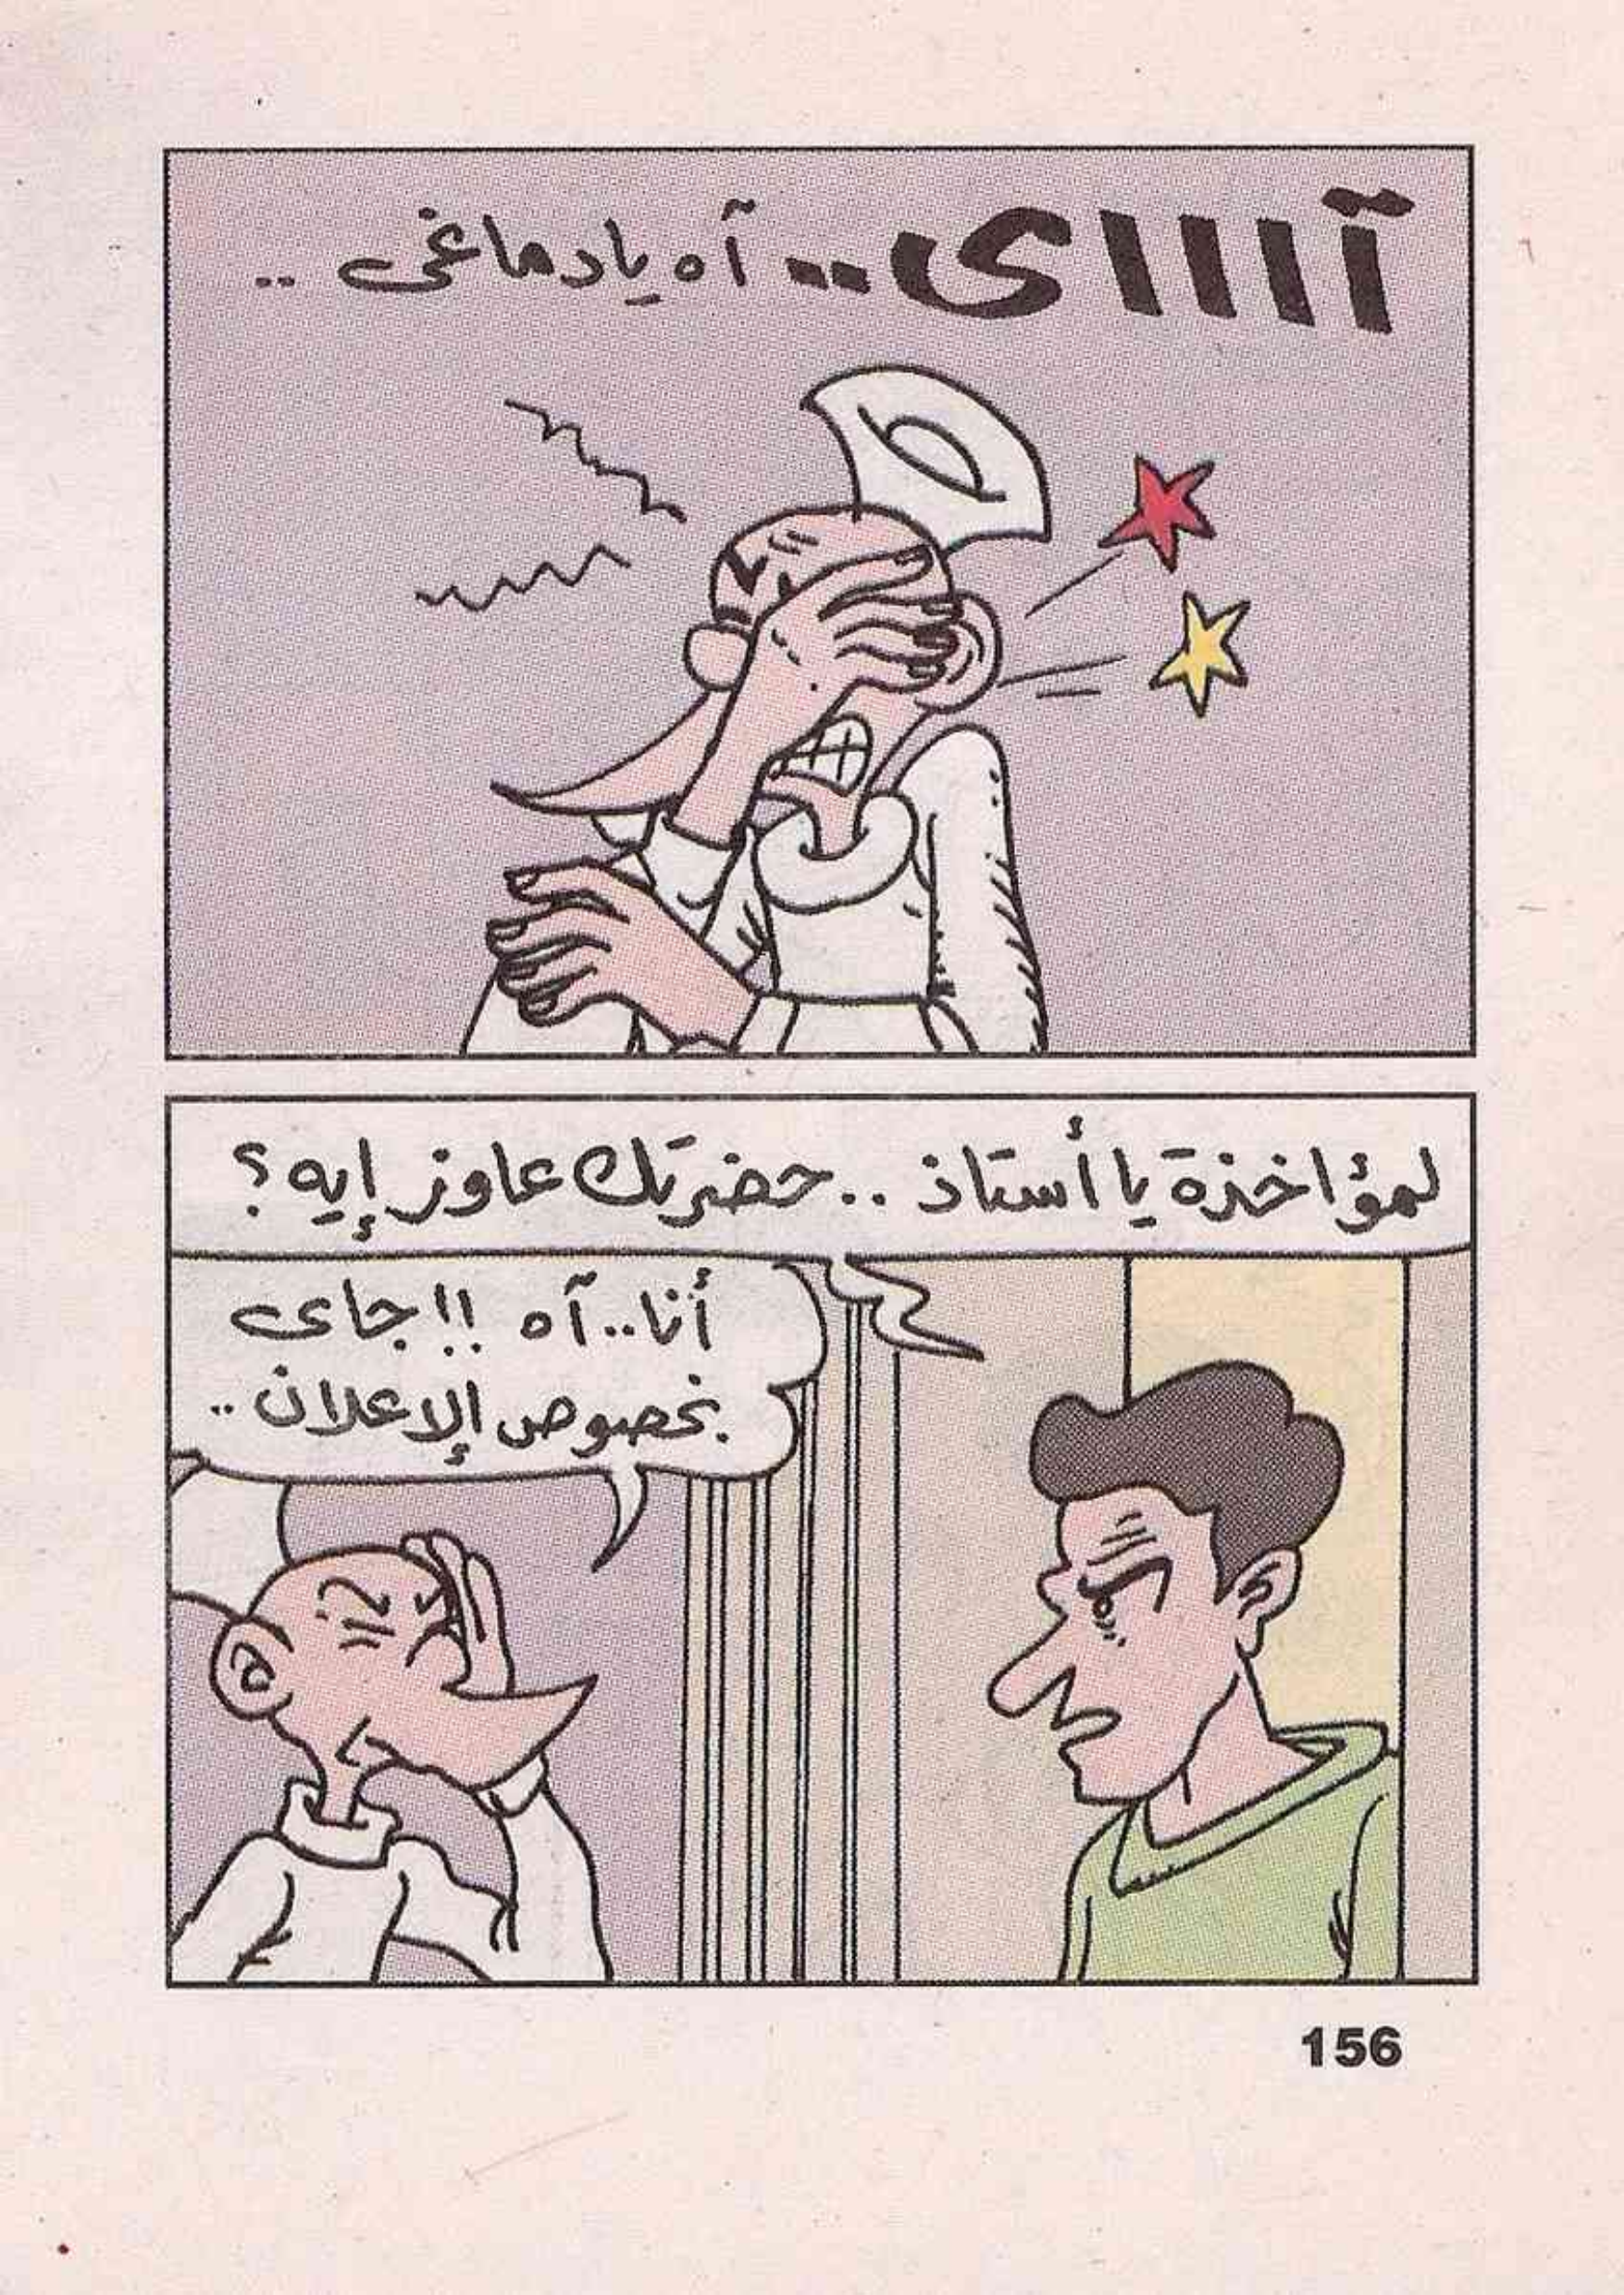 آاااى.. آه يا دماغى ..
لمؤاخذة يا أستاذ .. حضرتك عاوز إيه ؟
أنا.. آه !! جاى
بخصوص الإعلان ..
156